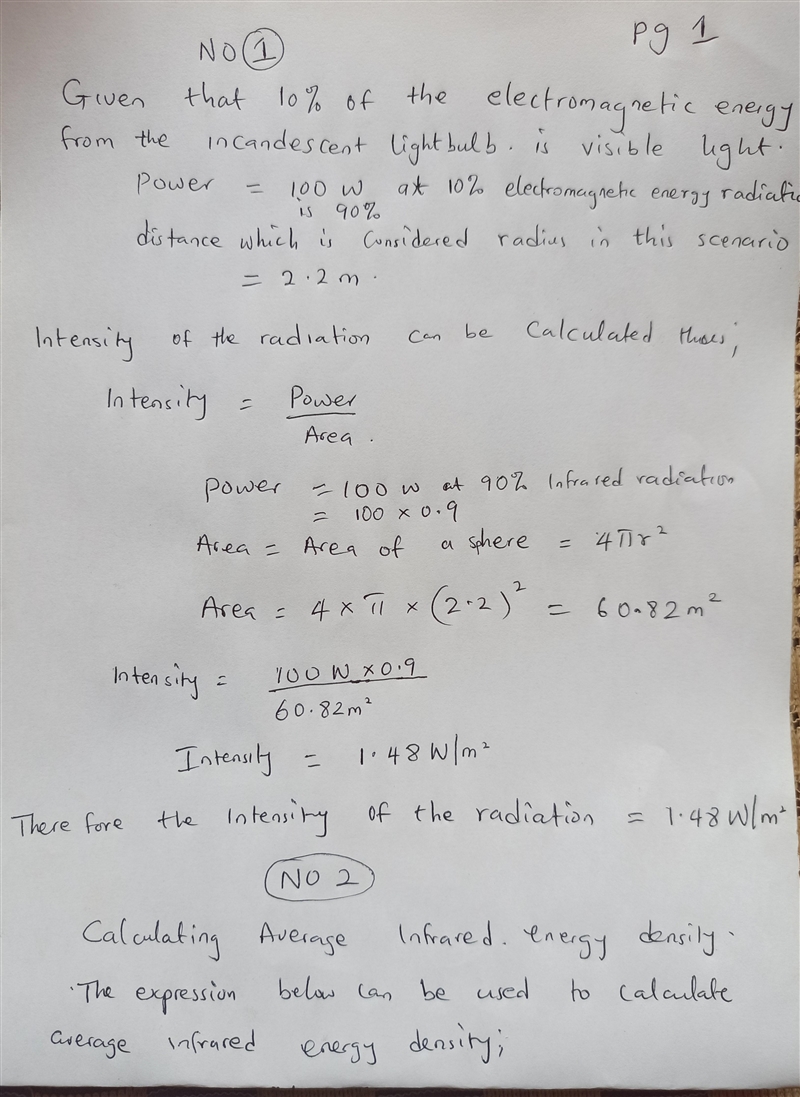 pg 1
NO 1
Given that 10% of the electromagnetic energy
from the incandescent lightbulb. is visible light.
Power = 100 W at 10% electromagnetic energy radiatio
is 90%
distance which is Considered radius in this scenario
= 2.2 m.
Intensity of the radiation can be Calculated thus;
Intensity = Power
Area.
Power = 100 W at 90% Infrared radiation
= 100 x 0.9
Area = Area of a sphere = 4πr²
Area = 4 x π x (2.2)² = 60.82 m²
Intensity = 100 W x 0.9
60.82m²
Intensity = 1.48 W/m²
There fore the Intensity of the radiation = 1.48 W/m²
NO 2
Calculating Average Infrared. energy density.
.The expression below can be used to Calculate
average infrared energy density;